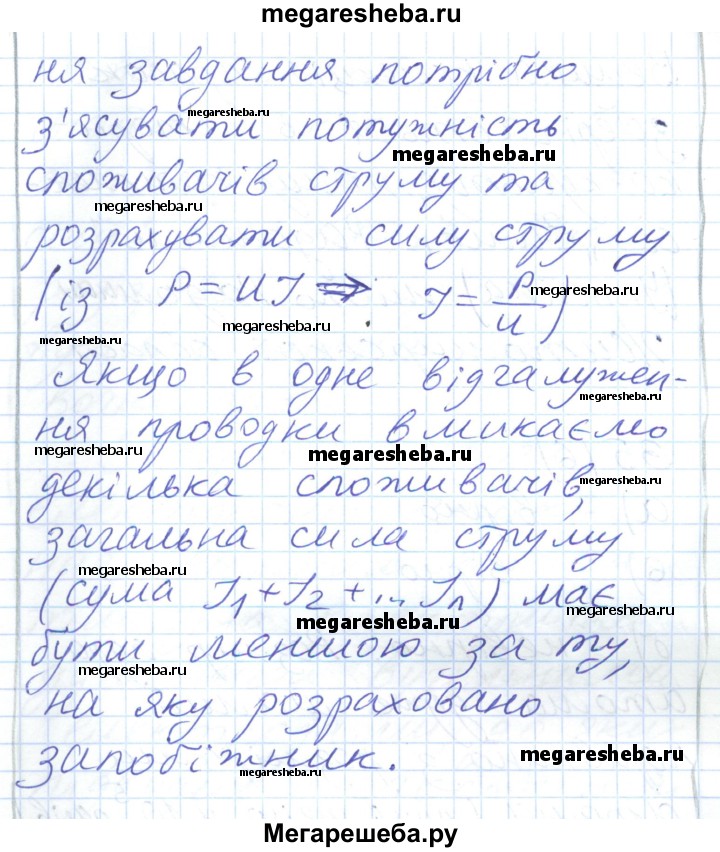 megaresheba.ru
ня завдання потрібно
megaresheba.ru
з'ясувати потужність
megaresheba.ru
споживачів струму та
megaresheba.ru
розрахувати силу струму
(із P = UI ⇒ I = P/U)
megaresheba.ru
megaresheba.ru
megaresheba.ru
Якщо в одне відгалужен-
megaresheba.ru
ня проводки вмикаємо
megaresheba.ru
megaresheba.ru
декілька споживачів,
megaresheba.ru
загальна сила струму
megaresheba.ru
(сума I1 + I2 + ... In) має
megaresheba.ru
megaresheba.ru
бути меншою за ту,
megaresheba.ru
на яку розраховано
запобіжник.
megaresheba.ru
megaresheba.ru
Мегарешеба.ру